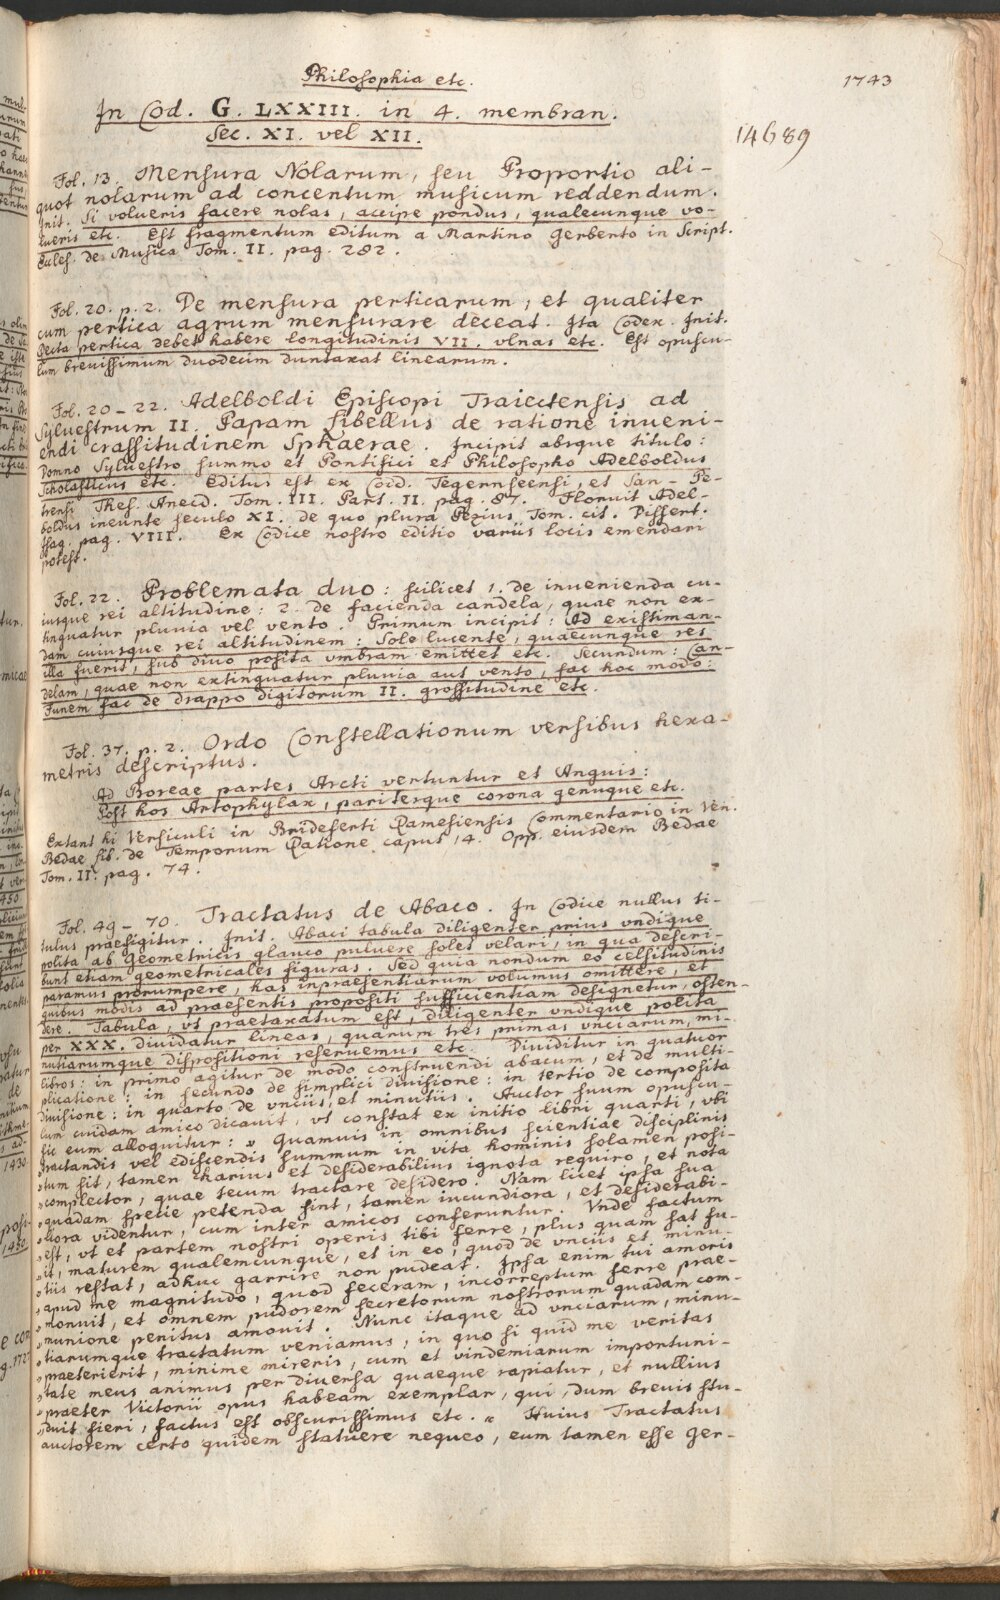 Philosophia etc.
1743
In Cod. G. LXXIII. in 4. membran.
Sec. XI. vel XII.
14689
Fol. 13. Mensura Nolarum, seu Proportio ali-
quot nolarum ad concentum musicum reddendum.
Init. Si volueris facere nolas, accipe pondus, qualecunque vo-
lueris etc. Est fragmentum editum a Martino Gerberto in Script.
Eccles. de Musica Tom. II. pag. 282.
Fol. 20. p. 2. De mensura perticarum, et qualiter
cum pertica agrum mensurare deceat. Ita Codex. Init.
Recta pertica debet habere longitudinis VII. vlnas etc. Est opuscu-
lum brevissimum duodecim duntaxat linearum.
Fol. 20-22. Adelboldi Episcopi Traiectensis ad
Sylvestrum II. Papam libellus de ratione inueni-
endi crassitudinem Sphaerae. Incipit absque titulo:
Domno Sylvestro summo et Pontifici et Philosopho Adelboldus
Scholasticus etc. Editus est ex Codd. Tegernseensi, et San-Pe-
trensi Thes. Anecd. Tom. III. Part. II. pag. 87. Floruit Adel-
boldus ineunte seculo XI. de quo plura Pezius Tom. cit. Dissert.
Isag. pag. VIII. Ex Codice nostro editio variis locis emendari
potest.
Fol. 22. Problemata duo: scilicet 1. de inuenienda cu-
iusque rei altitudine: 2. de facienda candela, quae non ex-
tinguatur pluvia vel vento. Primum incipit: Ad existiman-
dam cuiusque rei altitudinem: Sole lucente, quaecunque res
illa fuerit, sub diuo posita vmbram emittet etc. Secundum: Can-
delam, quae non extinguatur pluvia aut vento, fac hoc modo:
Funem fac de drappo digitorum II. grossitudine etc.
Fol. 37. p. 2. Ordo Constellationum versibus hexa-
metris descriptus.
Ad Boreae partes Arcti vertuntur et Anguis:
Post hos Artophylax, pariterque corona genuque etc.
Extant hi Versiculi in Brideferti Ramesiensis Commentario in Ven.
Bedae lib. de Temporum Ratione caput 14. Opp. eiusdem Bedae
Tom. II. pag. 74.
Fol. 49-70. Tractatus de Abaco. In Codice nullus ti-
tulus praefigitur. Init. Abaci tabula diligenter prius vndique
polita ab Geometricis glauco puluere solet velari, in qua descri-
bunt etiam geometricales figuras. Sed quia nondum eo celsitudinis
paramus prorumpere, has inpraesentiarum volumus omittere, et
quibus modis ad praesentis propositi sufficientiam designetur, osten-
dere. Tabula, vt praetaxatum est, diligenter vndique polita
per XXX. dividatur lineas, quarum tres primas vnciarum, mi-
nutiarumque dispositioni reseruemus etc. Dividitur in quatuor
libros: in primo agitur de modo construendi abacum, et de multi-
plicatione: in secundo de simplici diuisione: in tertio de composita
diuisione: in quarto de vnciis, et minutiis. Auctor suum opuscu-
lum cuidam amico dicauit, vt constat ex initio libri quarti, vbi
sic eum alloquitur: „Quamuis in omnibus scientiae disciplinis
„tractandis vel ediscendis summum in vita hominis solamen posi-
„tum sit, tamen charius et desiderabilius ignota requiro, et nota
„complector, quae tecum tractare desidero. Nam licet ipsa sua
„quadam specie petenda sint, tamen iucundiora, et desiderabi-
„liora videntur, cum inter amicos conferuntur. Vnde factum
„est, vt et partem nostri operis tibi ferre, plus quam sat fu-
„it, maturem qualemcunque, et in eo, quod de vnciis et minu-
„tiis restat, adhuc garrire non pudeat. Ipsa enim tui amoris
„apud me magnitudo, quod feceram, incorreptum ferre prae-
„monuit, et omnem pudorem secretorum nostrorum quadam com-
„munione penitus amouit. Nunc itaque ad vnciarum, minu-
„tiarumque tractatum veniamus, in quo si quid me veritas
„praeterierit, minime mireris, cum et vindemiarum importuni-
„tate meus animus per diuersa quaeque rapiatur, et nullius
„praeter Victorii opus habeam exemplar, qui, dum breuis stu-
„duit fieri, factus est obscurissimus etc.“ Huius Tractatus
auctorem certo quidem statuere nequeo, eum tamen esse Ger-